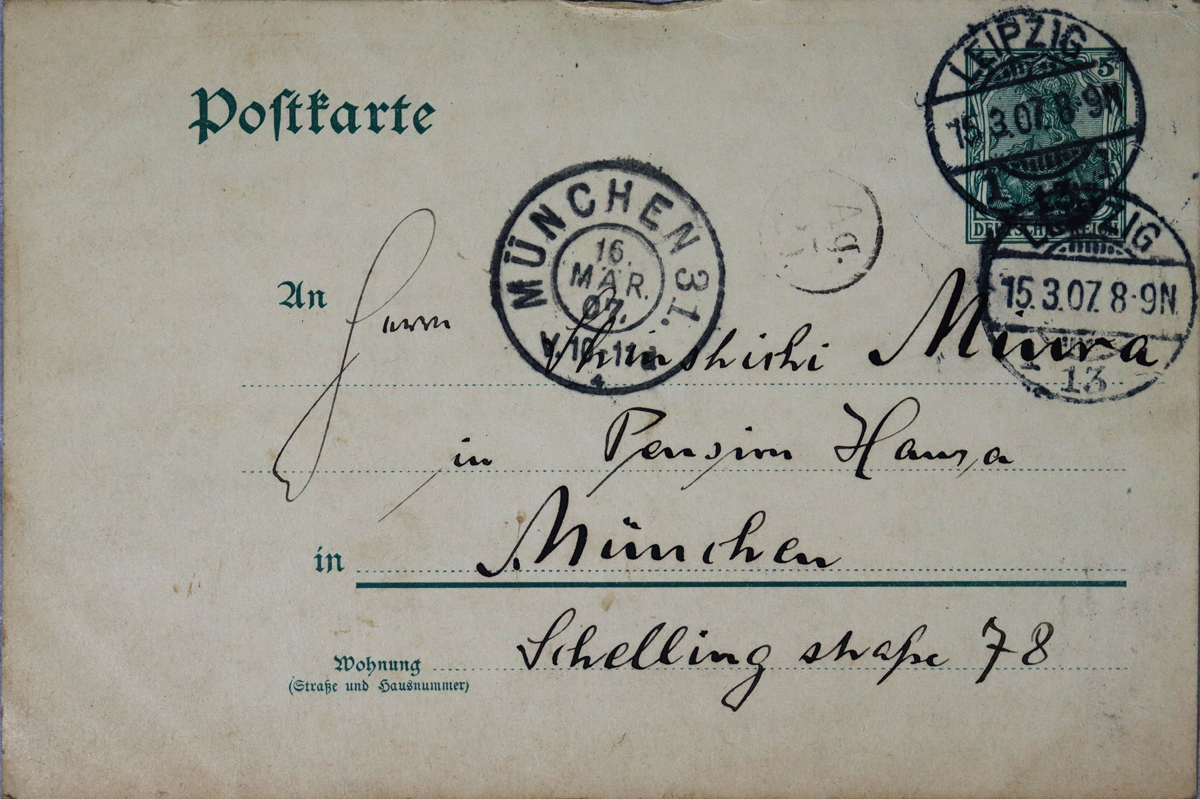 Postkarte
LEIPZIG
5
15.3.07. 8-9N
1
13
DEUTSCHES REICH
LEIPZIG
15.3.07. 8-9N
1
13
MÜNCHEN 31.
16.
MÄR.
07.
V. 10-11
4
Ag.
An Herrn Shinshichi Miura
in Pension Hansa
in München
Wohnung Schelling straße 78
(Straße und Hausnummer)